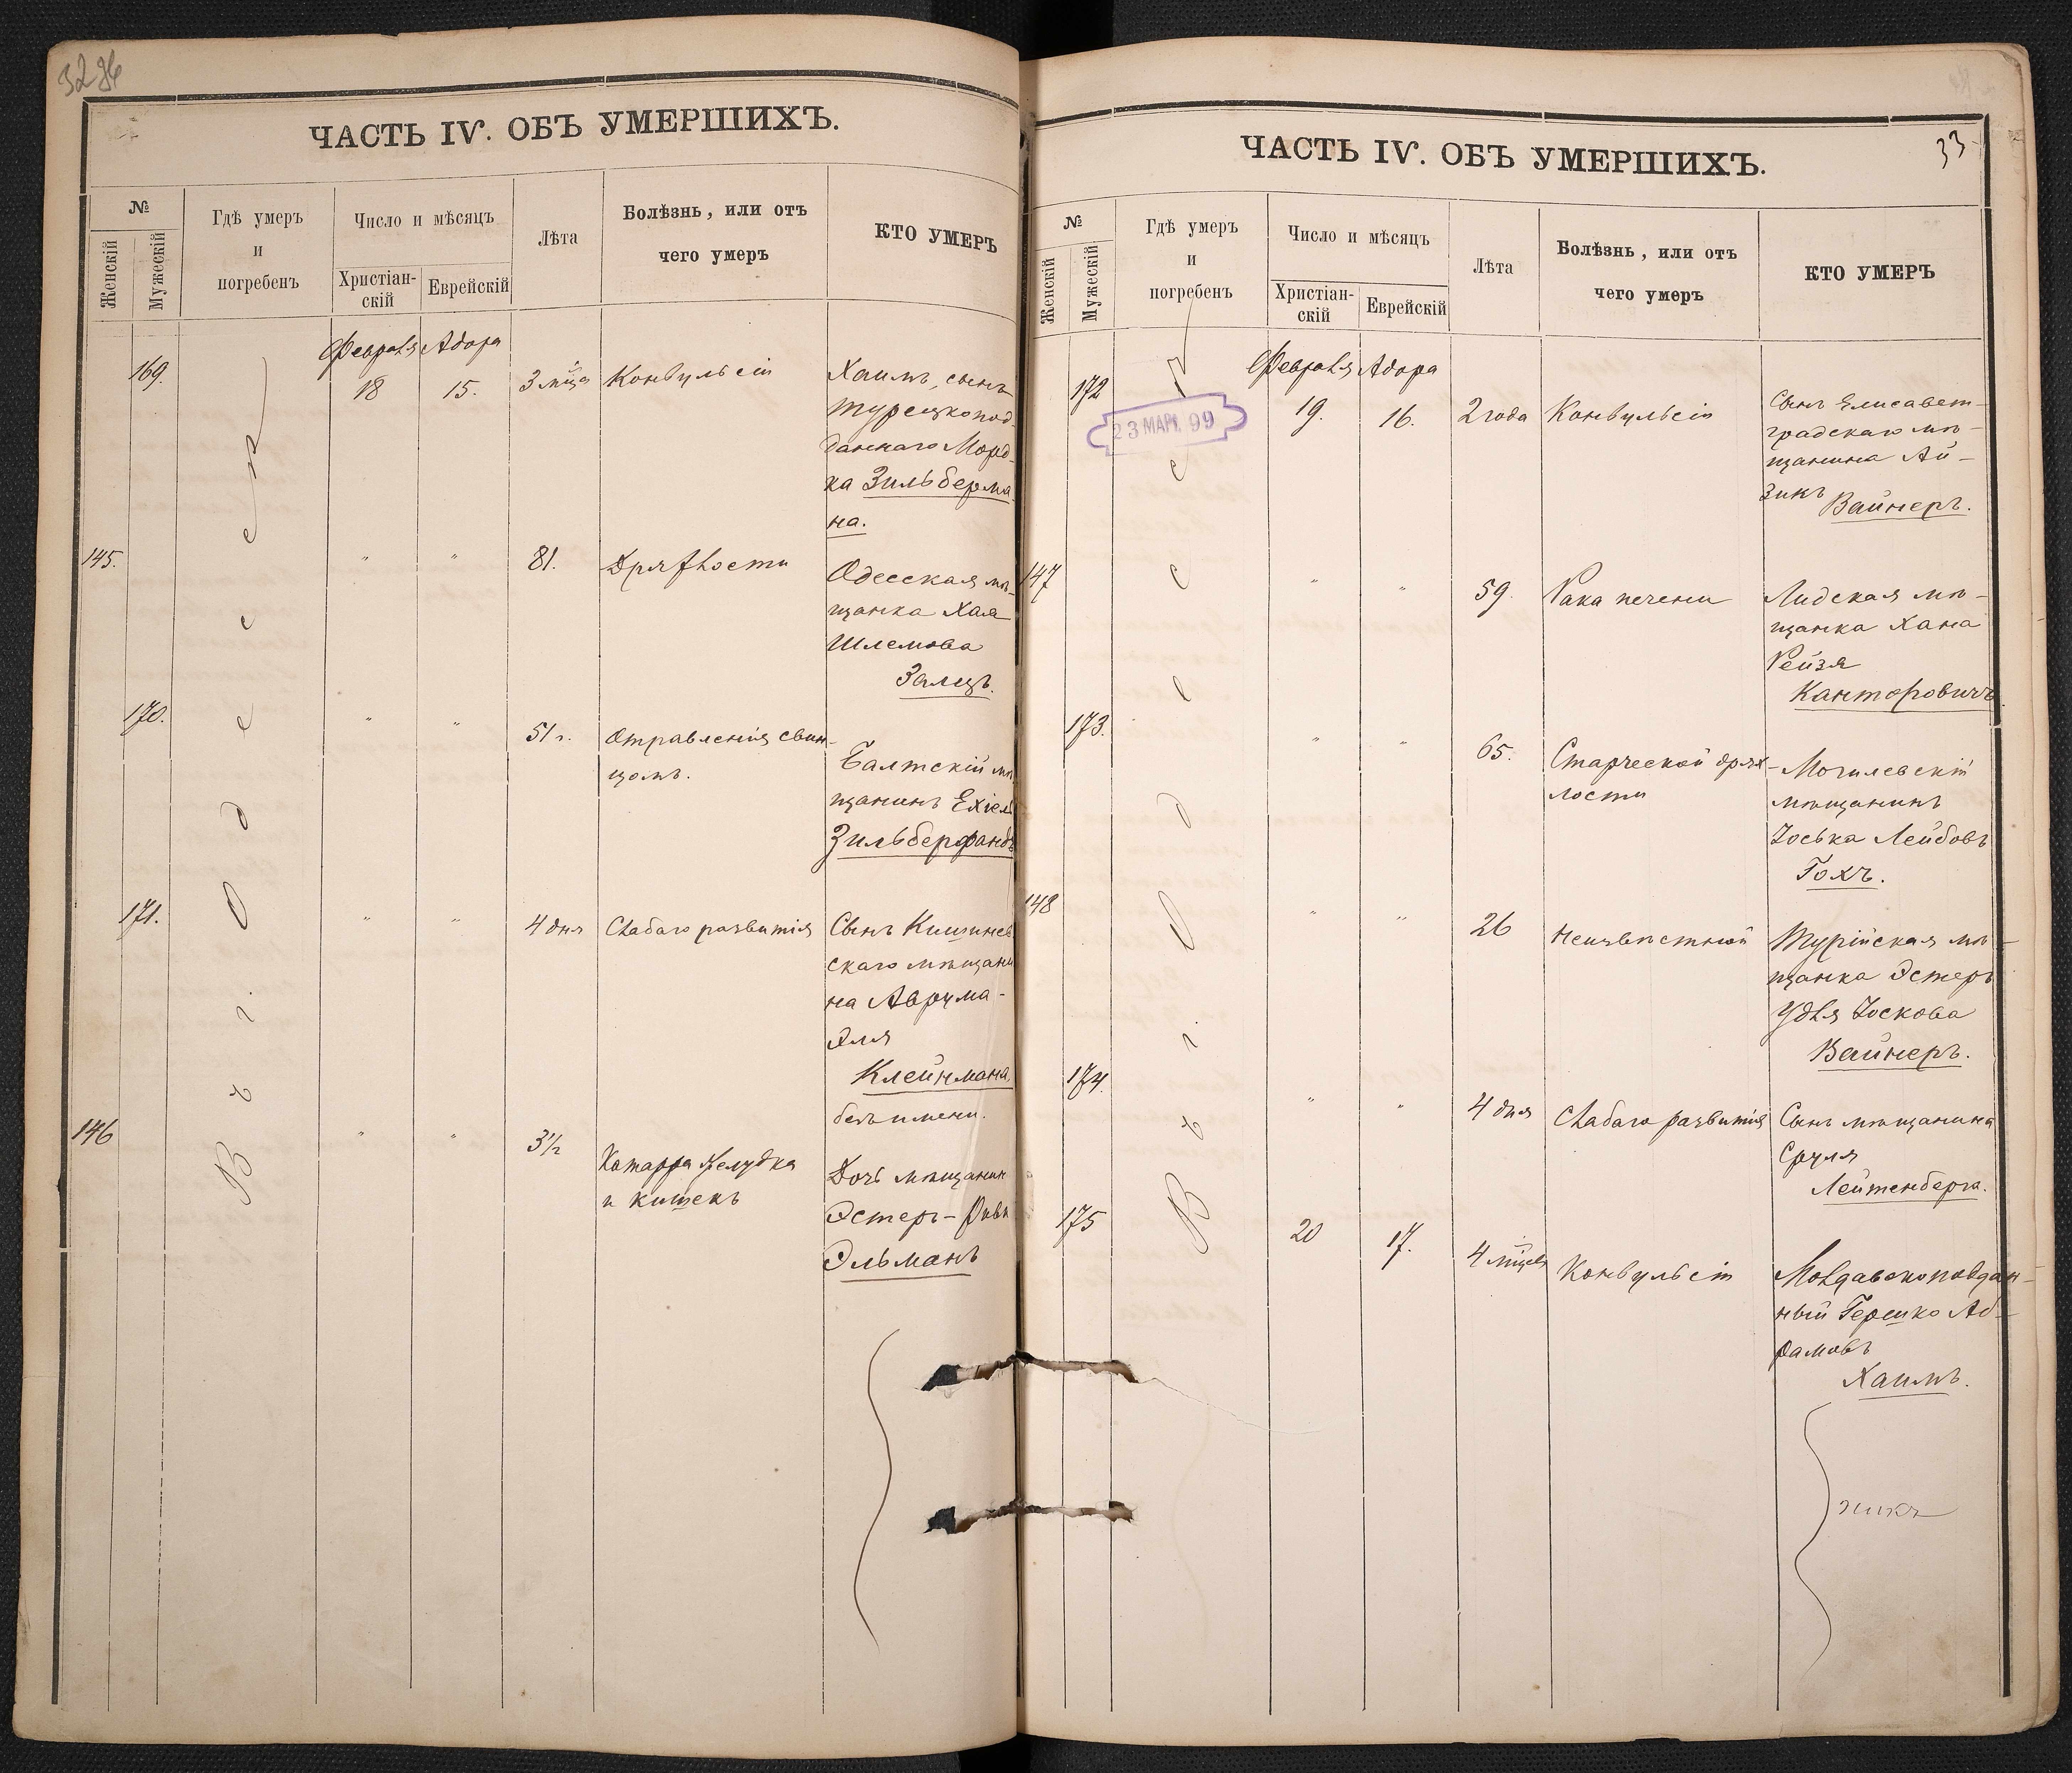 3284
ЧАСТЬ IV. ОБЪ УМЕРШИХЪ.
№
Женскій
Мужескій
Гдѣ умеръ
и
погребенъ
Число и мѣсяцъ
Христіан-
скій
Еврейскій
Лѣта
Болѣзнь, или отъ
чего умеръ
КТО УМЕРЪ
Въ г. Одессѣ
Февраля Адора
169. 18 15. 3 мѣца Конвульсіи
Хаимъ, сынъ
турецкопод-
даннаго Морд-
ка Зильберма-
на.
145. " " 81. Дряхлости
Одесская мѣ-
щанка Хая
Шлемова
Залцъ.
170. " " 51 г. Отравленія свин-
цомъ.
Балтскій мѣ
щанинъ Ехіель
Зильберфандъ
171. " " 4 дня Слабаго развитія
Сынъ Кишинев
скаго мѣщани
на Аврума-
Эля
Клейнмана
безъ имени.
146 " " 3½ Катарра желудка
и кишекъ
Дочь мѣщанин
Эстеръ-Ривк
Эльманъ
ЧАСТЬ IV. ОБЪ УМЕРШИХЪ.
33
№
Женскій
Мужескій
Гдѣ умеръ
и
погребенъ
Число и мѣсяцъ
Христіан-
скій
Еврейскій
Лѣта
Болѣзнь, или отъ
чего умеръ
КТО УМЕРЪ
Въ г. Одессѣ
23 МАР. 99
Февраля Адора
172 19. 16. 2 года Конвульсіи
Сынъ Елисавет-
градскаго мѣ-
щанина Ай-
зикъ Вайнеръ.
147 " " 59. Рака печени
Лидская мѣ-
щанка Хана
Рейзя
Канторовичъ.
173. " " 65. Старческой дрях-
лости
Могилевскій
мѣщанинъ
Іоська Лейбовъ
Гохъ.
148 " " 26 Неизвѣстной
Турійская мѣ-
щанка Эстеръ
Удля Іоскова
Вайнеръ.
174. " " 4 дня Слабаго развитія
Сынъ мѣщанина
Сруля
Лейтенберга.
175 20 17. 4 мѣцевъ Конвульсіи
Молдавскоподдан-
ный Гершко Аб-
рамовъ
Хаимъ.